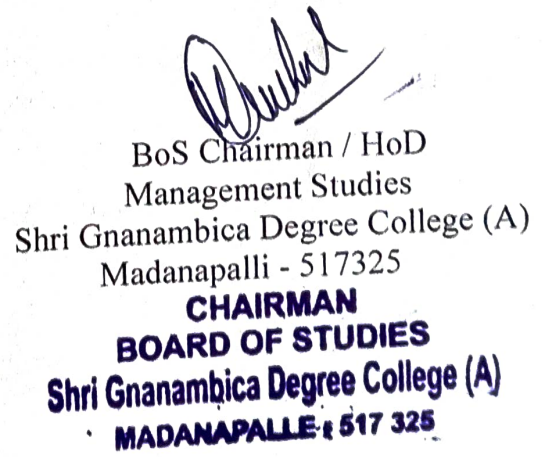 BoS Chairman / HoD
Management Studies
Shri Gnanambica Degree College (A)
Madanapalli - 517325
CHAIRMAN
BOARD OF STUDIES
Shri Gnanambica Degree College (A)
MADANAPALLE : 517 325